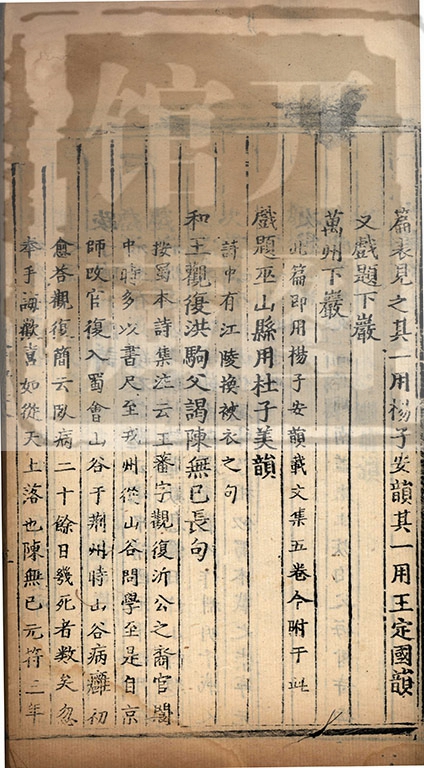 篇表見之其一用楊子安韻其一用王定國韻
又戲題下巖
萬州下巖
此篇即用楊子安韻載文集五卷今附于此
戲題巫山縣用杜子美韻
詩中有江陵換裌衣之句
和王觀復洪駒父謁陳無已長句
按蜀本詩集注云王蕃字觀復沂公之裔官閬
中時多以書尺至戎州從山谷問學至是自京
師改官復入蜀會山谷于荊州時山谷病癰初
愈答觀復簡云臥病二十餘日幾死者數矣忽
奉手誨歡喜如從天上落也陳無已元符三年